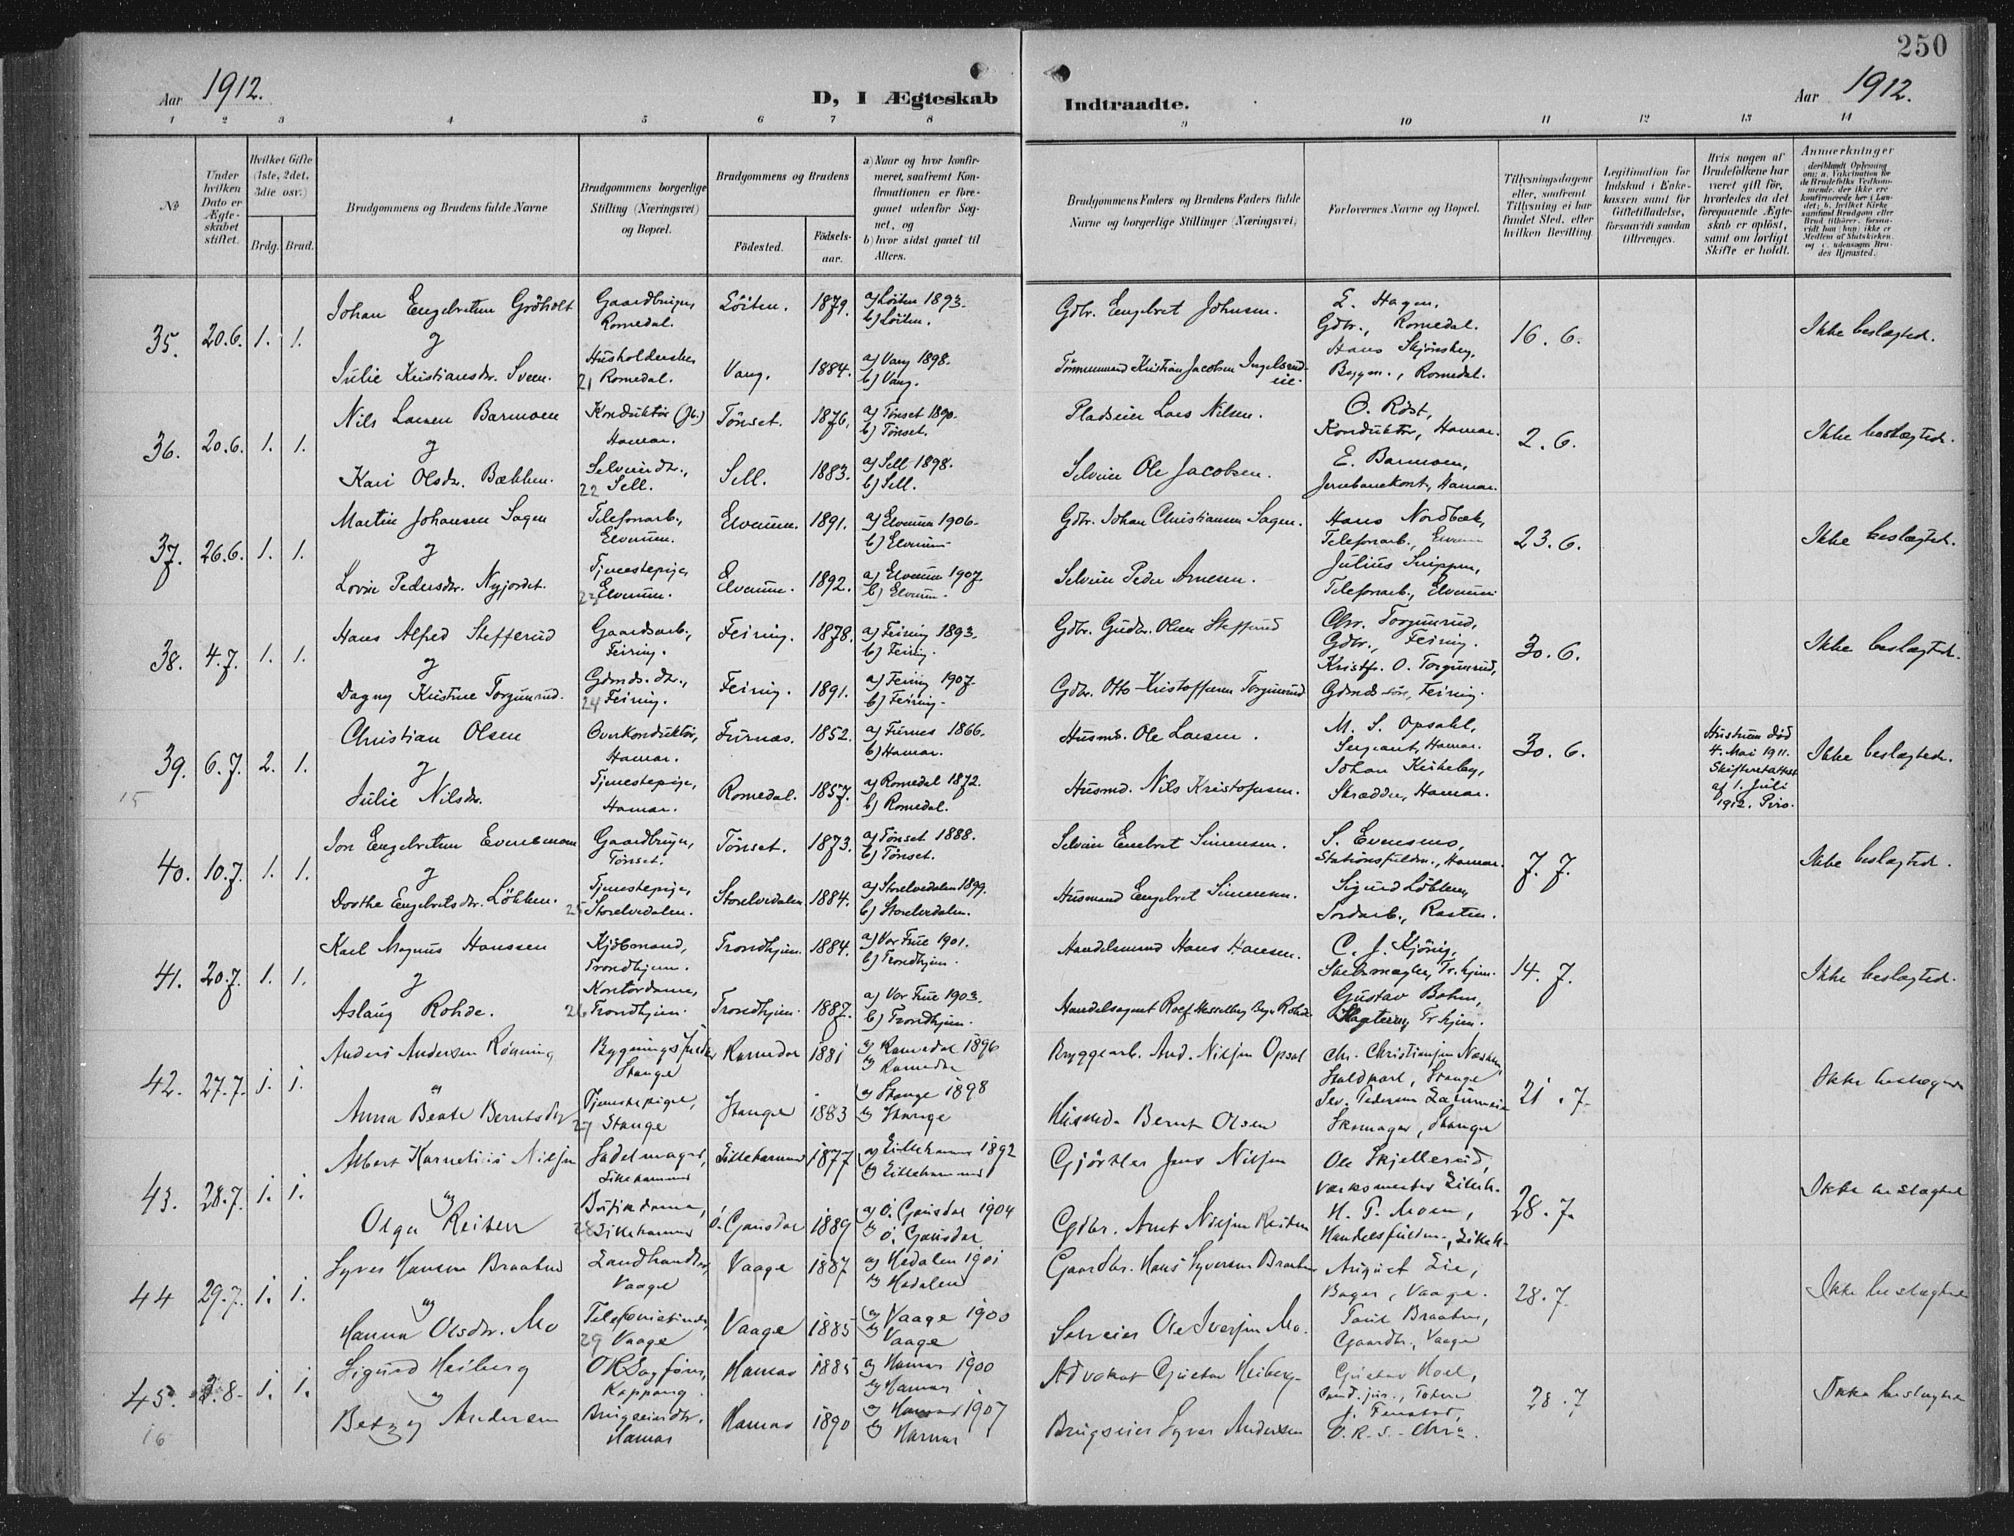 250
Aar 1912.
D, I Ægteskab Indtraadte.
Aar 1912.
1 2 3 4 5 6 7 8 9 10 11 12 13 14
No
Under hvilken Dato er Ægteskabet stiftet.
Hvilket Gifte (1ste, 2det, 3die osv.)
Brdg. Brud.
Brudgommens og Brudens fulde Navne
Brudgommens borgerlige Stilling (Næringsvei) og Bopæl.
Brudgommens og Brudens
Fødested. Fødselsaar.
a) Naar og hvor konfirmeret, saafremt Konfirmationen er foregaaet udenfor Sognet, og
b) hvor sidst gaaet til Alters.
Brudgommens Faders og Brudens Faders fulde Navne og borgerlige Stillinger (Næringsvei)
Forlovernes Navne og Bopæl.
Tillysningsdagene eller, saafremt Tillysning ei har fundet Sted, efter hvilken Bevilling.
Legitimation for Indskud i Enkekassen samt for Giftetilladelse, forsaavidt saadan tiltrænges.
Hvis nogen af Brudefolkene har været gift før, hvorledes da det foregaaende Ægteskab er opløst, samt om lovligt Skifte er holdt.
Anmærkninger
35. 20.6. 1. 1.
Johan Engebretsen Gröholt
Gaardbruger, Romedal.
Löiten. 1879.
a) Löiten 1893.
b) Löiten.
Gdbr. Engebret Johnsen.
E. Hagen,
Gdbr., Romedal.
16. 6.
Ikke beslægted.
og
Julie Kristiansdr. Sveen.
Husholderske
21 Romedal.
Vang. 1884.
a) Vang 1898.
b) Vang.
Tömmermand Kristian Jacobsen Ingelsrudeie.
Hans Skjönsberg,
Byggm., Romedal.
36. 20.6. 1. 1.
Nils Larsen Barmoen
Konduktör (Jb.)
Hamar.
Tönset. 1876.
a) Tönset 1890.
b) Tönset.
Pladseier Lars Nilsen.
O. Röst,
Konduktör, Hamar.
2. 6.
Ikke beslægted.
og
Kari Olsdr. Bækken.
Selveierdtr.,
22 Sell.
Sell. 1883.
a) Sell 1898.
b) Sell.
Selveier Ole Jacobsen.
E. Barmoen,
Jernbanekont., Hamar.
37. 26.6. 1. 1.
Martin Johansen Sagen
Telefonarb.,
Elverum.
Elverum. 1891.
a) Elverum 1906.
b) Elverum
Gdbr. Johan Christiansen Sagen.
Hans Nordbæk,
Telefonarb., Elverum
23. 6.
Ikke beslægted.
og
Lovise Pedersdr. Nyjordet.
Tjenestepige,
23 Elverum.
Elverum. 1892.
a) Elverum 1907.
b) Elverum.
Selveier Peder Arnesen.
Julius Snippen,
Telefonarb., Elverum
38. 4.7. 1. 1.
Hans Alfred Stefferud
Gaardsarb.,
Feiring.
Feiring. 1878.
a) Feiring 1893.
b) Feiring.
Gdbr. Gudbr. Olsen Stefferud
Chr. Torgunrud,
Gdbr., Feiring.
30. 6.
Ikke beslægted.
og
Dagny Kristine Torgunrud.
Gdmds.dtr.,
24 Feiring.
Feiring. 1891.
a) Feiring 1907.
b) Feiring.
Gdbr. Otto Kristoffersen Torgunrud
Kristfr. O. Torgunrud,
Gdmds sön, Feiring.
39. 6.7. 2. 1.
15
Christian Olsen
Overkonduktör,
Hamar.
Furnæs. 1852.
a) Furnes 1866.
b) Hamar.
Husmd. Ole Larsen.
M. S. Opsahl,
Sergeant, Hamar.
30. 6.
Hustruen död
4. Mai 1911.
Skifteretattest
af 1. Juli
1912. Pvis.
Ikke beslægtede.
og
Julie Nilsdr.
Tjenestepige,
Hamar.
Romedal. 1857.
a) Romedal 1872.
b) Romedal.
Husmd. Nils Kristofersen.
Johan Kirkeby,
Skrædder, Hamar.
40. 10.7. 1. 1.
Jon Engebretsen Evensmoen
Gaardbruger,
Tönset.
Tönset. 1873.
a) Tönset 1888.
b) Tönset.
Selveier Engebret Simensen.
S. Evensmo,
Stationsfuldm., Hamar.
7. 7.
Ikke beslægted.
og
Dorthe Engebretsdtr. Lökken.
Tjenestepige,
25 Storelvedalen.
Storelvedalen 1884.
a) Storelvedalen 1899.
b) Storelvedalen.
Husmand Engebret Simensen.
Sigurd Lökken,
Jordarb., Rasten.
41. 20.7. 1. 1.
Karl Magnus Hanssen
Kjöbmand,
Trondhjem.
Trondhjem. 1884.
a) Vor Frue 1901.
b) Trondhjem.
Handelsmand Hans Hansen.
C. J. Kjönig,
Skibsmægler, Tr.hjem.
14. 7.
Ikke beslægted.
og
Aslaug Rohde.
Kontordame,
26 Trondhjem.
Trondhjem. 1887.
a) Vor Frue 1903.
b) Trondhjem.
Handelsagent Roef Hesselberg Rohde
Gustav Bohm,
Slagterm, Tr.hjem.
42. 27.7. 1. 1.
Anders Andersen Rönning
Stange
Romedal 1881
a) Romedal 1896
b) Romedal
Bryggearb. And. Nilsen Opsal
Chr. Christiansen
Stange
21. 7.
Ikke beslægtede
og
Anna Beate Berntsdtr
Tjenestepige,
27 Stange
Stange 1883
a) Stange 1898
b) Stange
Husmd. Bernt Olsen
Sev. Pedersen
Skomager, Stange
43. 28.7. 1. 1.
Albert Kornelius Nilsen
Sadelmager,
Lillehammer
Lillehammer 1877
a) Lillehammer 1892
b) Lillehammer
Gjörtler Jens Nilsen
Ole Skjellerud,
Værksmester Lilleh.
28. 7.
Ikke beslægtede
og
Olga Reiten
Butikdame,
28 Lillehammer
Ö. Gausdal 1889
a) Ö. Gausdal 1904
b) Ö. Gausdal
Gdbr. Arnt Nilsen Reiten
H. P. Moen,
Handelsfuldm., Lilleh.
44 29.7. 1. 1.
Syver Hansen Braaten
Landhandler,
Vaage
Vaage 1887
a) Hedalen 1901
b) Hedalen
Gaardbr. Hans Syversen Braaten
August Lie,
Bager, Vaage.
28. 7.
Ikke beslægtede
og
Hanna Olsdtr. Mo
Telefonistinde,
29 Vaage
Vaage 1885
a) Vaage 1900
b) Vaage
Selveier Ole Iversen Mo.
Paul Braaten,
Gaardbr., Vaage
45. 3.8. 1. 1.
16
Sigurd Heiberg
O.R.Sagförer,
Koppang.
Hamar 1885
a) Hamar 1900
b) Hamar
Advokat Gustav Heiberg
Gustav Hoel,
Cand. jur., Toten
28. 7
Ikke beslægtede
og
Betzy Andersen
Brugseierdtr.
Hamar
Hamar 1890
a) Hamar 1907
b) Hamar
Brugseier Syver Andersen
J. Fenstad,
O.R.S. Chr.a.